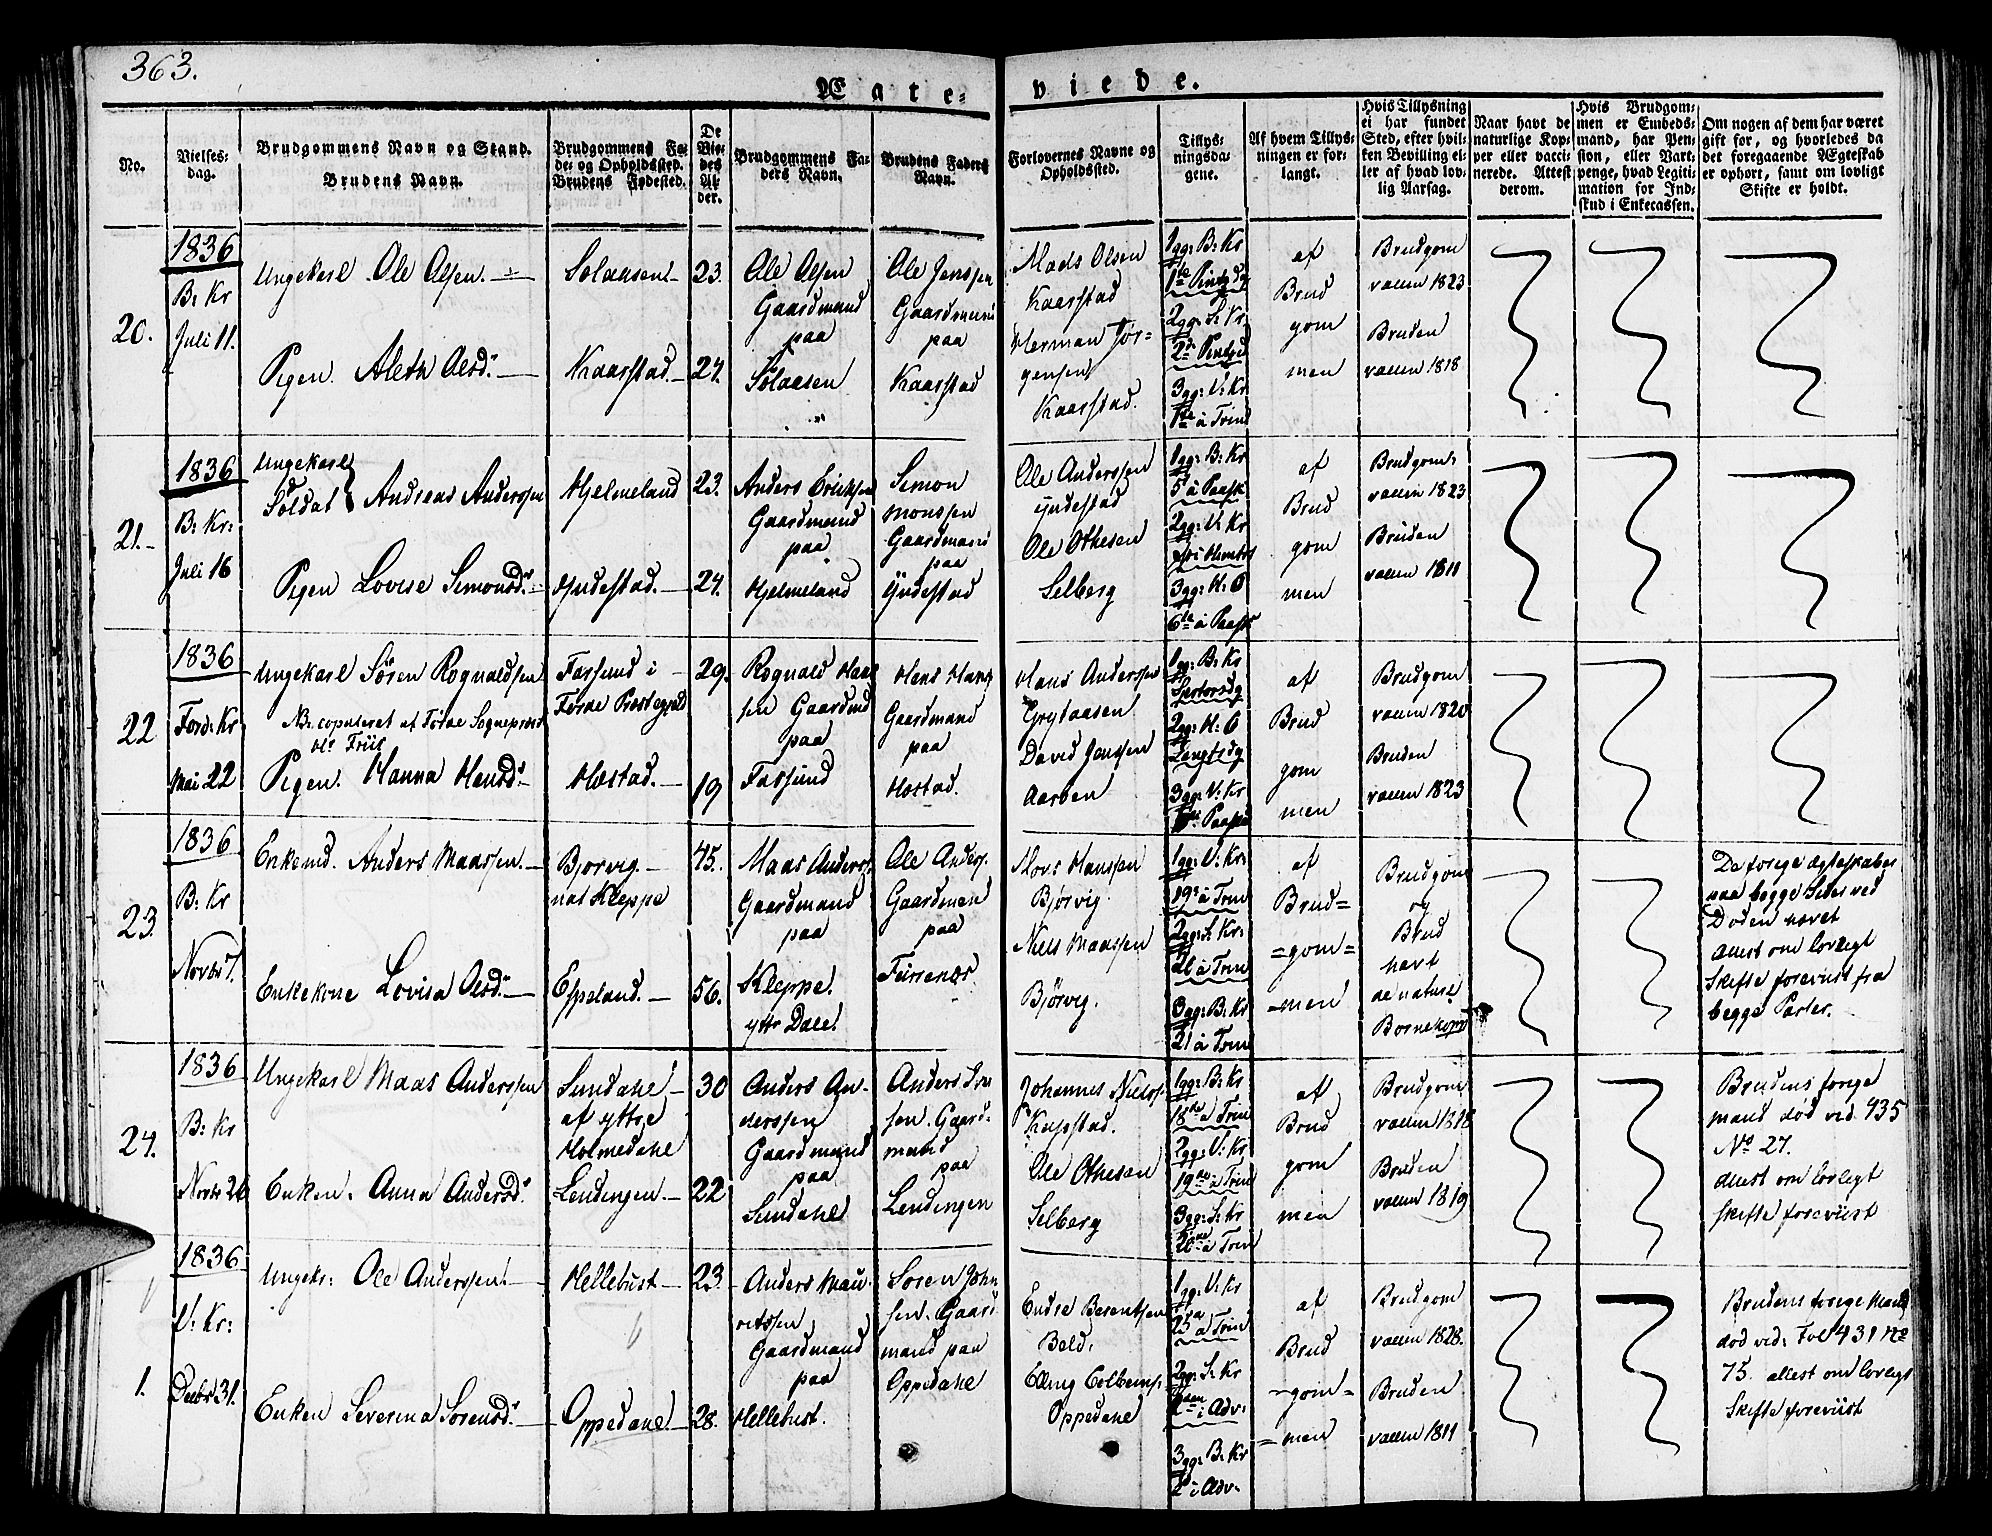 363.
Ægte-
viede.
No.
Vielses-
dag.
Brudgommens Navn og Stand.
Brudens Navn.
Brudgommens Fø-
de- og Opholdssted.
Brudens Fødested.
De
Vie-
des
Al-
der.
Brudgommens Fa-
ders Navn.
Brudens Faders
Navn.
Forlovernes Navne og
Opholdssted.
Tillys-
ningsda-
gene.
Af hvem Tillys-
ningen er for-
langt.
Hvis Tillysning
ei har fundet
Sted, efter hvil-
ken Bevilling el-
ler af hvad lov-
lig Aarsag.
Naar havt de
naturlige Kop-
per eller vacci-
nerede. Attest
derom.
Hvis Brudgom-
men er Embeds-
mand, har Pen-
sion, eller Vart-
penge, hvad Legiti-
mation for Ind-
skud i Enkecassen.
Om nogen af dem har været
gift før, og hvorledes da
det foregaaende Ægteskab
er ophørt, samt om lovligt
Skifte er holdt.
20.
1836
B: Kr
Juli 11.
Ungekarl Ole Olsen.
Pigen. Aleth Olsd:
Solaasen
Kaarstad.
23.
24.
Ole Olsen
Gaardmand
paa
Solaasen
Ole Jenssen
Gaardmand
paa
Kaarstad
Mads Olsen
Kaarstad
Herman Jør-
gensen
Kaarstad.
1gg: B: Kr
1te Pintsdg
2gg: S: Kr
2d Pintsd
3gg: V: Kr
1te à Trin
af
Brud
gom
men
Brudgom
vaccin 1823
Bruden
vaccin 1818
21.
1836
B: Kr:
Juli 16
Ungekarl
Soldat Andreas Anderssen
Pigen Lovise Simonsd:
Hjelmeland
Yndestad.
23.
24.
Anders Ericksen
Gaardmand
paa
Hjelmeland
Simon
Monssen
Gaardmand
paa
Yndestad
Ole Anderssen
Yndestad
Ole Othesen
Selberg
1gg: B: Kr
5 à Paask
2gg: V: Kr
3gg: H: O
6te à Paask
af
Brud
gom
men
Brudgom:
vaccin 1823
Bruden
vaccin 1811
22
1836
Førd: Kr
Mai 22
Ungekarl Sören Rognaldsen
NB. copuleret af Förde Sogneprest
Hr Friis
Pigen. Hanna Hansd:
Farsund i
Förde Prestegjeld
Hæstad.
29.
19
Rognald Han
sen Gaardmd
paa
Farsund
Hans Hans
Gaardmand
paa
Hæstad.
Hans Anderssen
Grytaasen
David Jenssen
Aasben
1gg: B: Kr
2gg: H: O
Langfrdg
3gg: V: Kr
af
Brud
gom
men
Brudgom
vaccin 1820
Bruden
vaccin 1823
23.
1836
B: Kr
Novbr 7.
Enkemd. Anders Maassen.
Enkekone Lovisa Olsd:
Bjorvig.
nat Kleppe
Espeland.
45.
56.
Maas Anderss:
Gaardmand
paa
Kleppe.
yttr Dale.
Ole Anders.
Gaardmand
paa
Furrenæs.
Mons Hanssen
Bjørvig.
Niels Maassen
Bjørvig.
1gg: V: Kr:
19de à Trin
2gg: S: Kr:
20 à Trin
3gg: B: Kr
21 à Trin
af
Brud=
=gom=
=men
Brudgom
og
Brud
havt
de naturl
Bornekop
De forige Ægteskaber
paa begge Sider ved
Døden hævet
attest om lovligt
Skifte foreviist fra
begge Parter.
24.
1836
B: Kr
Novbr 26
Ungekarl Maas Anderssen
Enken. Anna Andersd:
Sundahl
af yttre
Holmedahl
Lendingen
30
22
Anders An-
derssen
Gaardmand
paa
Sundahl
Anders Iver
sen. Gaard-
mand
paa
Lendingen
Johannes Nielss:
Kapstad.
Ole Othesen
Selberg
1gg: B: Kr
18de à Trin
2gg: V: Kr
19de à Trin
3gg: S: Kr
20de à Trin
af
Brud
gom
men
Brudgom
vaccin 1818
Bruden
vaccin 1819
Brudens forige
mand død vid. 435
No 27.
attest om lovligt
skifte foreviist
1.
1836
V: Kr:
Decbr 31.
Ungek: Ole Anderssen
Enken Severina Sörensd:
Hellebust
Oppedahl
23.
28.
Anders Mau-
ritssen
Gaardmand
paa
Hellebust.
Sören John
sen. Gaard
mand paa
Oppedahl
Endre Berentsen
Bold.
Elling Colbenss:
Oppedahl
1gg: V: Kr
25 à Trin
2gg: S: Kr
i Adv:
3gg: B: Kr
2 i Adv.
af
Brud
=gom=
=men
Brudgom
vaccin 1828.
Bruden
vaccin 1811
Brudens forige Mand
død vid: Fol 431 No
75. attest om lovligt
Skifte foreviist